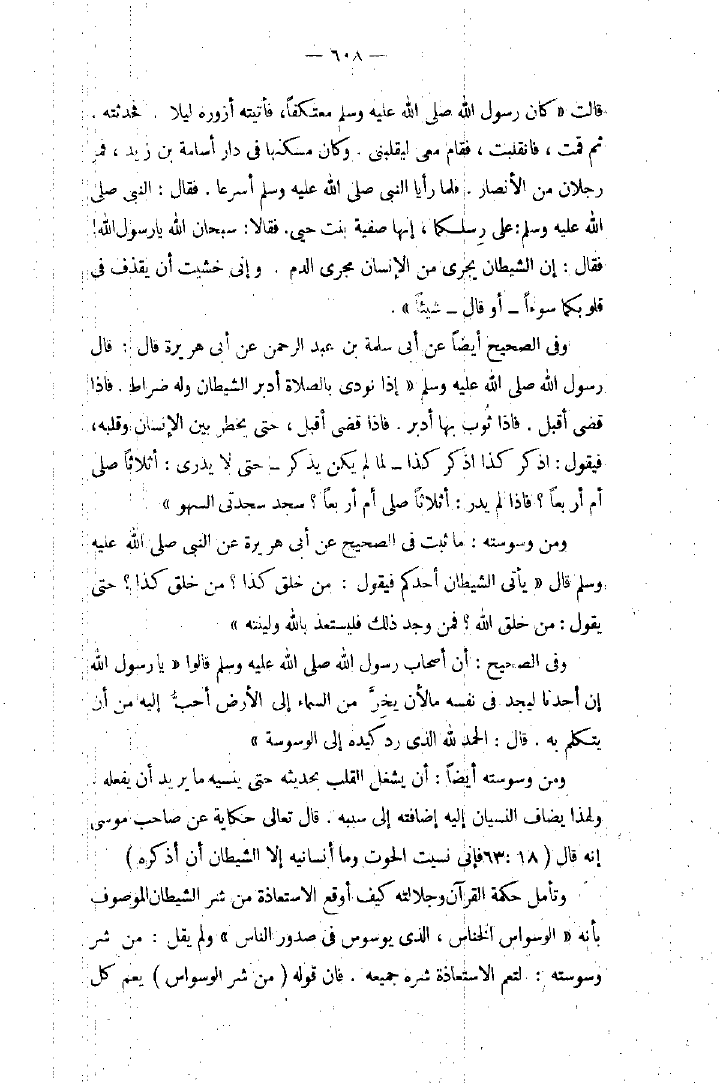 — ٦٠٨ —
قالت « كان رسول الله صلى الله عليه وسلم معتكفاً، فأتيته أزوره ليلا . فحدثته .
ثم قمت ، فانقلبت ، فقام معى ليقلبنى . وكان مسكنها فى دار أسامة بن زيد ، فمر
رجلان من الأنصار . فلما رأيا النبى صلى الله عليه وسلم أسرعا . فقال : النبى صلى
الله عليه وسلم : على رِسلكما ، إنها صفية بنت حيى. فقالا: سبحان الله يارسول الله!
فقال : إن الشيطان يجرى من الإنسان مجرى الدم . وإنى خشيت أن يقذف فى
قلوبكما سوءاً ــ أو قال ــ شيئاً » .
وفى الصحيح أيضاً عن أبى سلمة بن عبد الرحمن عن أبى هريرة قال : قال
رسول الله صلى الله عليه وسلم « إذا نودى بالصلاة أدبر الشيطان وله ضراط . فاذا
قضى أقبل . فاذا ثُوب بها أدبر . فاذا قضى أقبل ، حتى يخطر بين الإنسان وقلبه،
فيقول : اذكر كذا اذكر كذا ــ لما لم يكن يذكر ــ حتى لا يدرى : أثلاثاً صلى
أم أربعاً ؟ فاذا لم يدر : أثلاثاً صلى أم أربعاً ؟ سجد سجدتى السهو »
ومن وسوسته : ما ثبت فى الصحيح عن أبى هريرة عن النبى صلى الله عليه
وسلم قال « يأتى الشيطان أحدكم فيقول : من خلق كذا ؟ من خلق كذا ؟ حتى
يقول : من خلق الله ؟ فمن وجد ذلك فليستعذ بالله ولينته »
وفى الصحيح : أن أصحاب رسول الله صلى الله عليه وسلم قالوا « يا رسول الله
إن أحدنا ليجد فى نفسه مالأن يخرَّ من السماء إلى الأرض أحبُّ إليه من أن
يتكلم به . قال : الحمد لله الذى رد كيده إلى الوسوسة »
ومن وسوسته أيضاً : أن يشغل القلب بحديثه حتى ينسيه ما يريد أن يفعله .
ولهذا يضاف النسيان إليه إضافته إلى سببه . قال تعالى حكاية عن صاحب موسى
إنه قال ( ١٨ :٦٣ فإنى نسيت الحوت وما أنسانيه إلا الشيطان أن أذكره )
وتأمل حكمة القرآن وجلالته كيف أوقع الاستعاذة من شر الشيطان الموصوف
بأنه « الوسواس الخناس ، الذى يوسوس فى صدور الناس » ولم يقل : من شر
وسوسته : لتعم الاستعاذة شره جميعه . فان قوله ( من شر الوسواس ) يعم كل